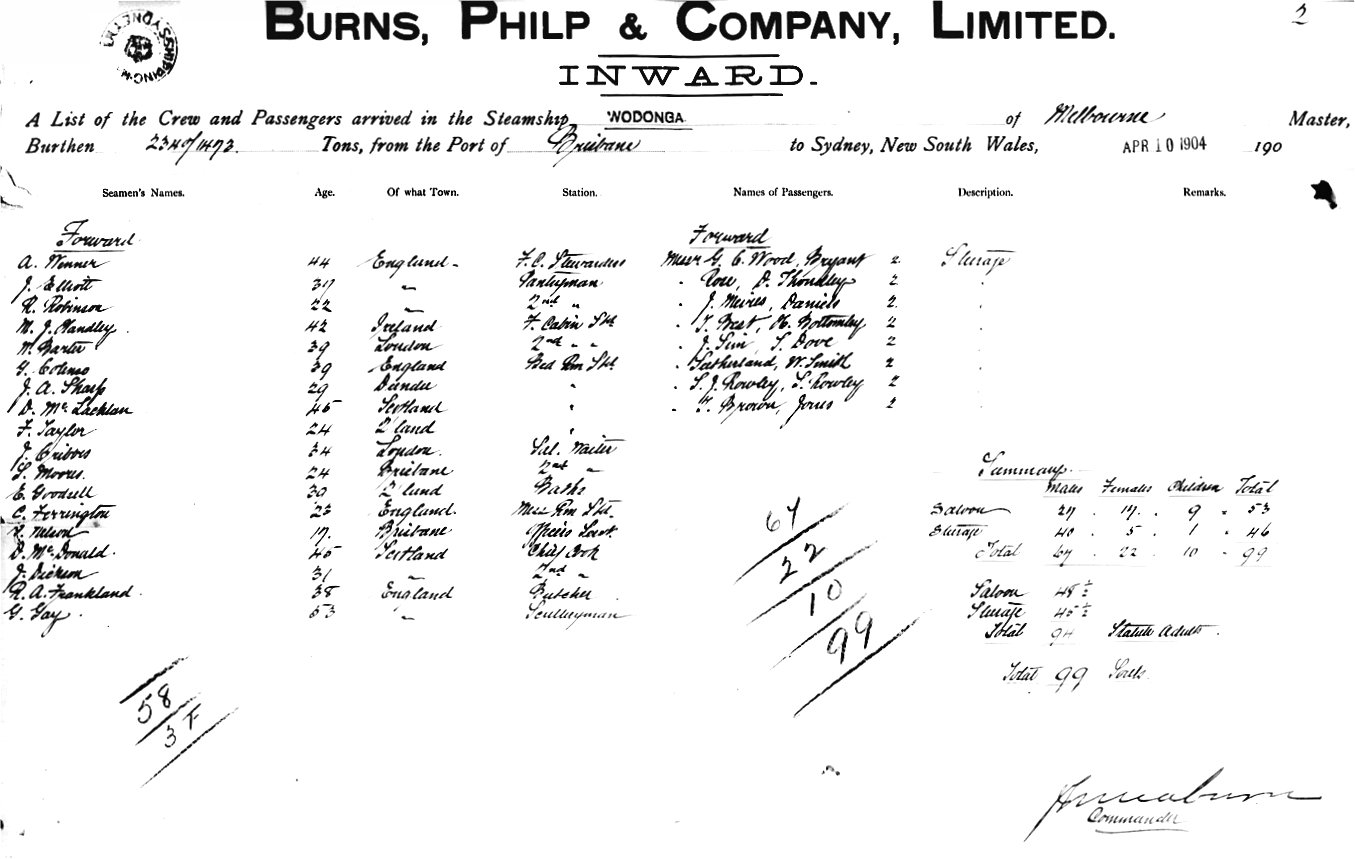 2
BURNS, PHILP & COMPANY, LIMITED.
INWARD.
A List of the Crew and Passengers arrived in the Steamship WODONGA of Melbourne Master,
Burthen 2340/1473 Tons, from the Port of Brisbane to Sydney, New South Wales, APR 10 1904 190
Seamen's Names. Age. Of what Town. Station. Names of Passengers. Description. Remarks.
Forward Forward
A. Winner 44 England F. C. Stewardess Messrs G. C. Wood, Bryant 2 Steerage
J. Elliott 37 " Pantryman " Rose, D. Thondley 2 "
R. Robinson 22 " 2nd " " J. Meires, Daniels 2 "
M. J. Handley 42 Ireland F. Cabin Std " T. Best, H. Bottomley 2 "
W. Barter 39 London 2nd " " " J. Sim, S. Dove 2 "
G. 39 England Bed Rm Std " Sutherland, W. Smith 2 "
J. A. Sharp 29 Dundee " " S. J. Rowley, S. Rowley 2 "
D. McLachlan 45 Scotland " " T. Brown, Jones 2 "
F. Taylor 24 Z'land "
J. 34 London Sal. Waiter
S. Moores 24 Brisbane 2nd "
E. Goodsell 30 Z'land
C. Ferrington 23 England Mess Rm Std.
R. Nelson 17 Brisbane
D. McDonald 45 Scotland Chief Cook
J. Dickson 31 " 2nd "
R. A. Frankland 38 England Butcher
G. Gay 53 " Sculleryman
58
3 F
67
22
10
99
Summary
Males Females Children Total
Saloon 27 " 17 " 9 " 53
Steerage 40 " 5 " 1 " 46
Total 67 22 10 99
Saloon 48½
Steerage 45½
Total 94 Statute Adults.
Total 99 Souls.
Commander